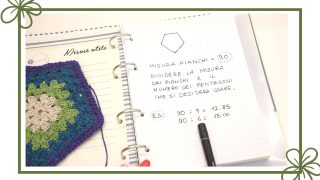 Misure utili
MISURA FIANCHI = 90
DIVIDERE LA MISURA
DEI FIANCHI X IL
NUMERO DEI PENTAGONI
CHE SI DESIDERA USARE.
ES: 90 : 7 = 12.85
90 : 6 = 15.00